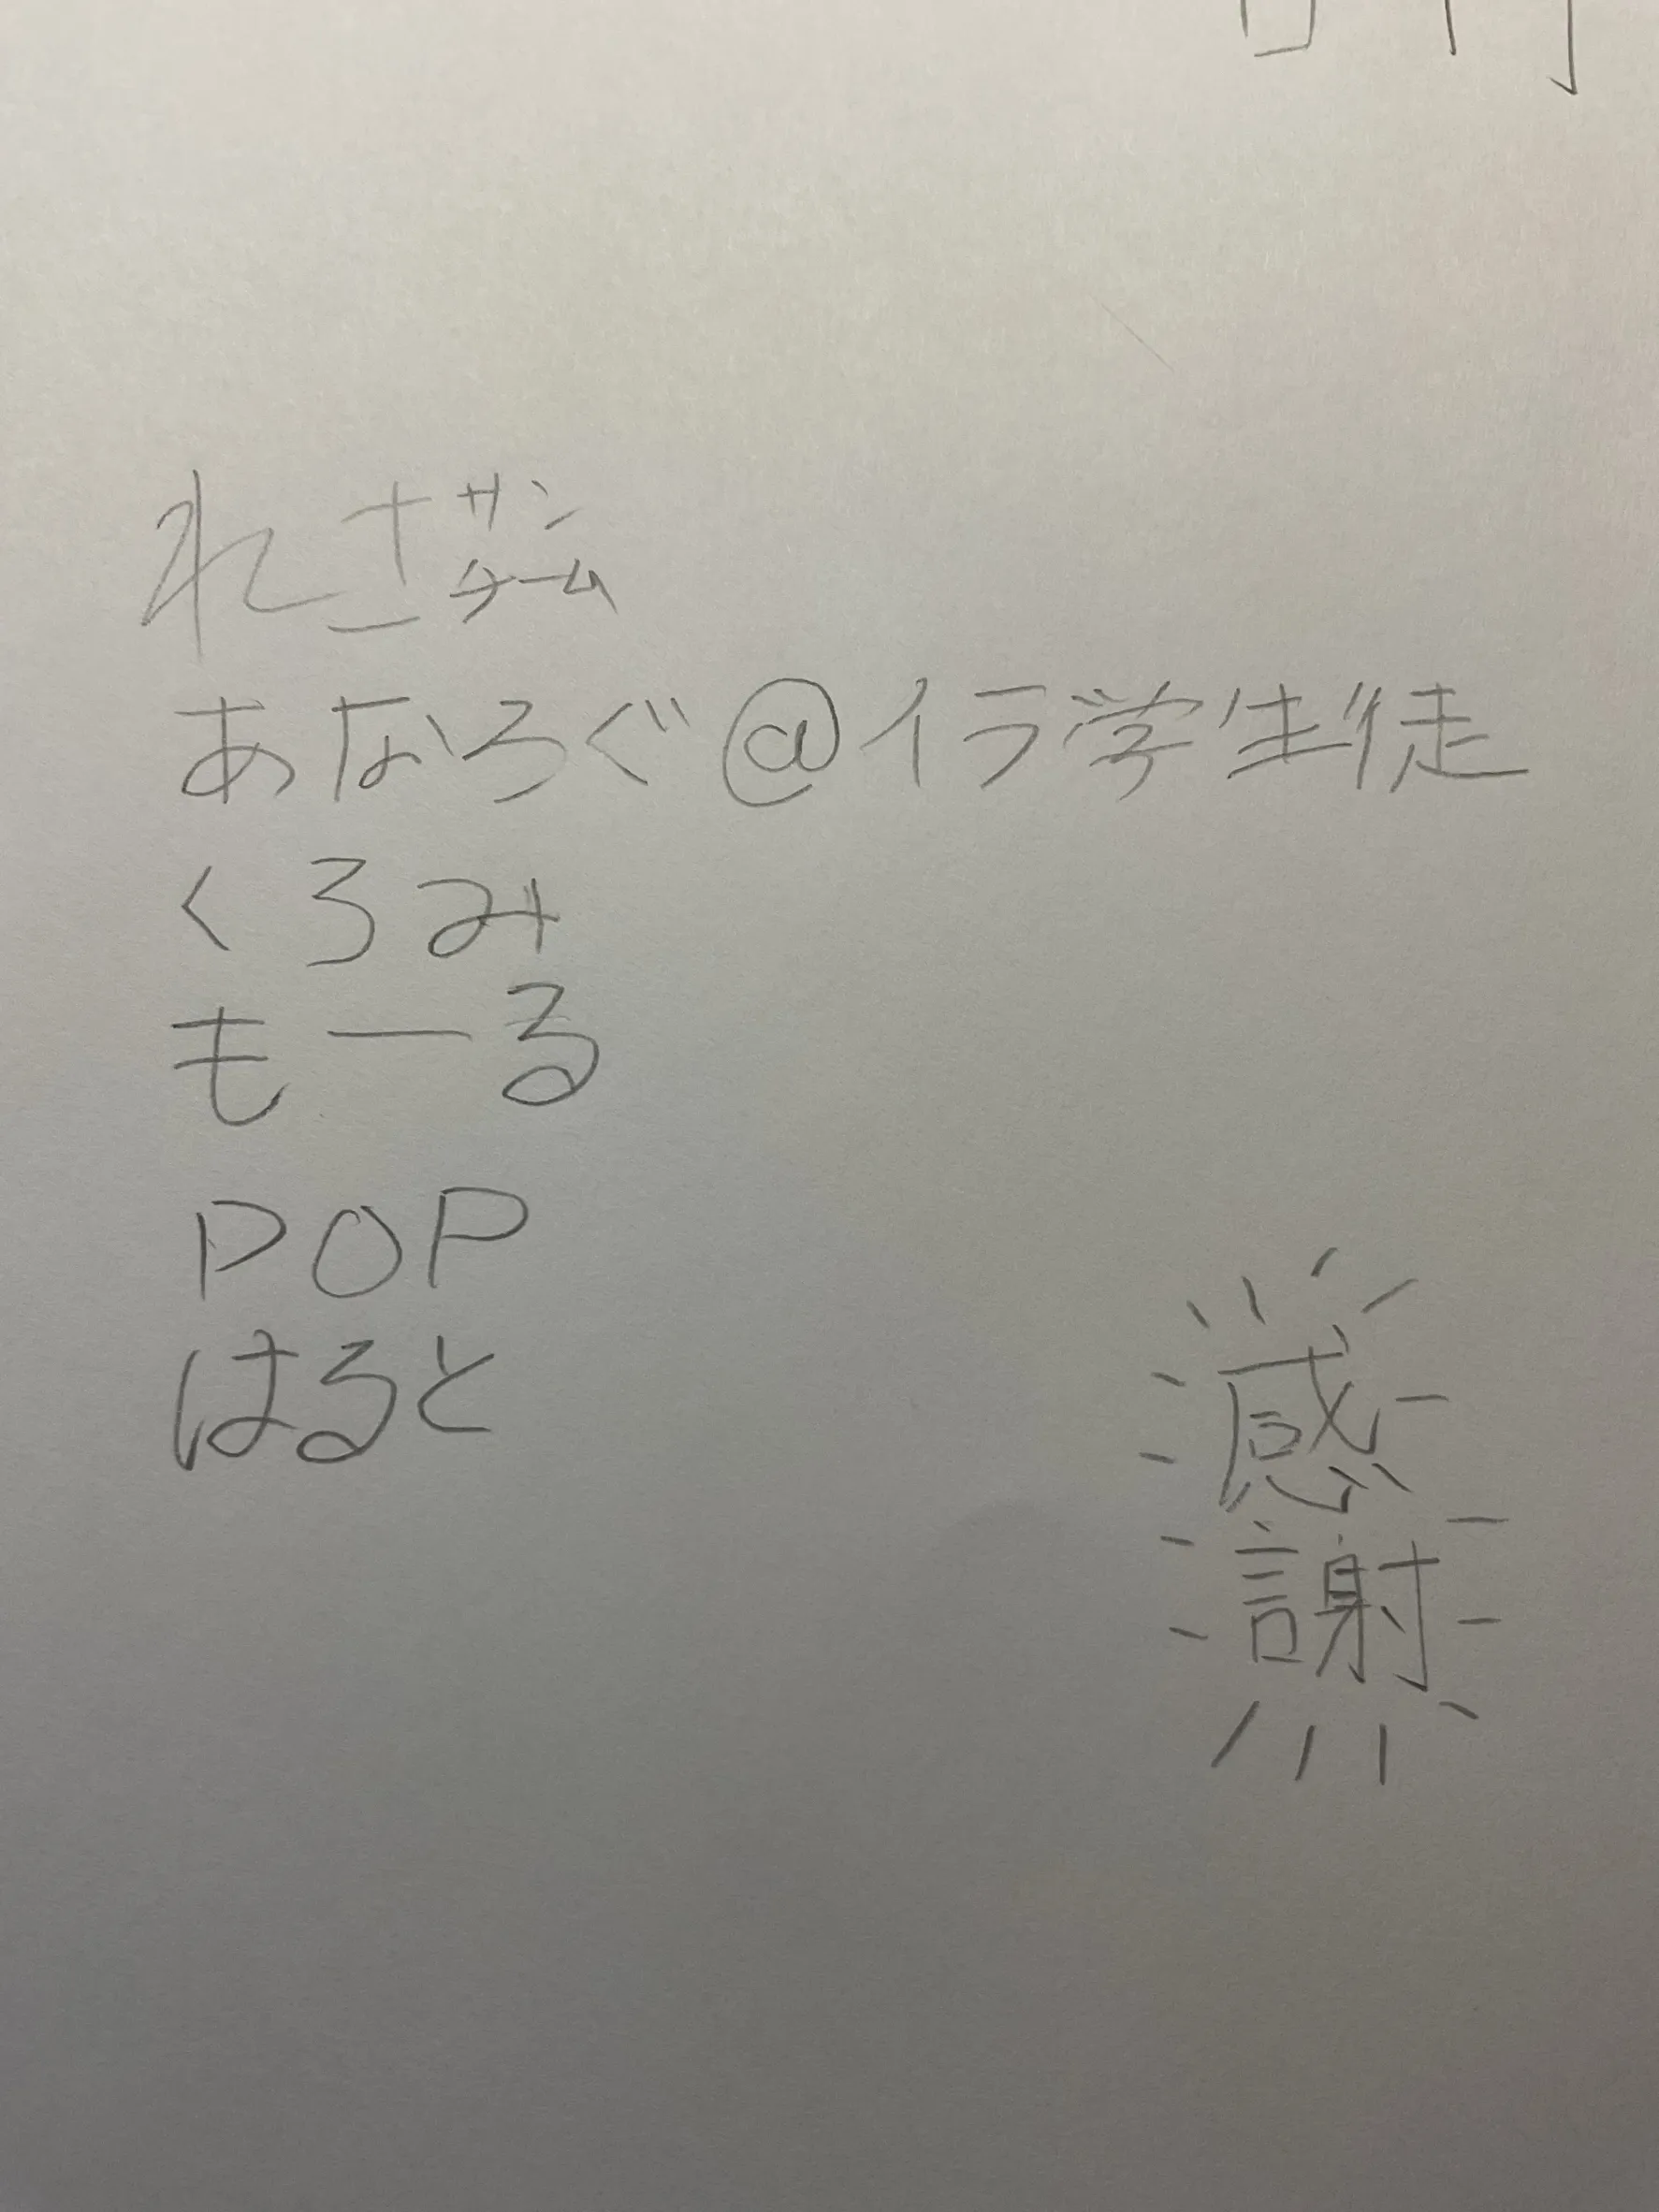 サン
チーム
あなろぐ@イラ学生徒
くろみ
もーる
POP
はると
感
謝